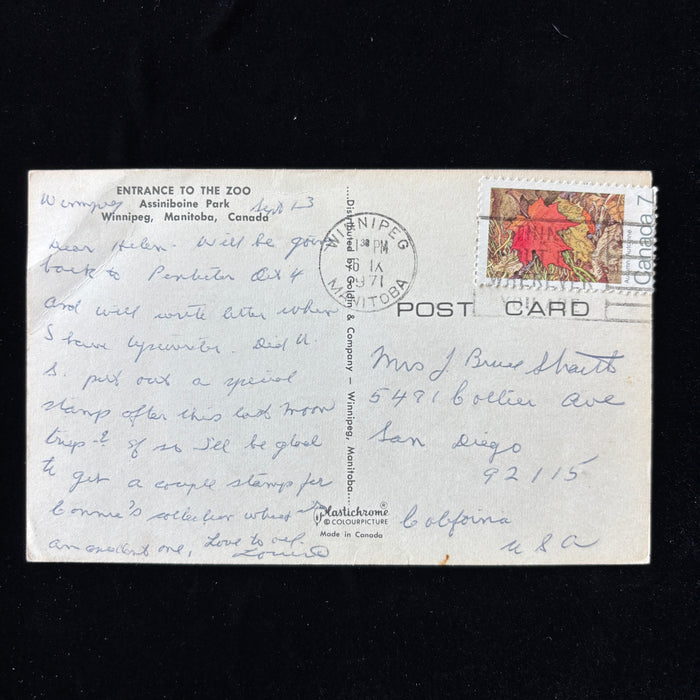 ENTRANCE TO THE ZOO
Assiniboine Park
Winnipeg, Manitoba, Canada
Winnipeg Sept 13
Dear Helen. Will be going
back to Oct 4
and will write letter when
I have typewriter. Did U.
S. put out a special
stamp after this last moon
trip? If so I'll be glad
to get a couple stamps for
Connie's collection
an excellent one, Love to all.
Louise
...Distributed by Goldin & Company — Winnipeg, Manitoba...
Plastichrome ®
© COLOURPICTURE
Made in Canada
WINNIPEG
1 30 PM
IX
1971
MANITOBA
Canada 7
POST CARD
Mrs J Bruce
5471 Collier Ave
San Diego
92115
California
USA